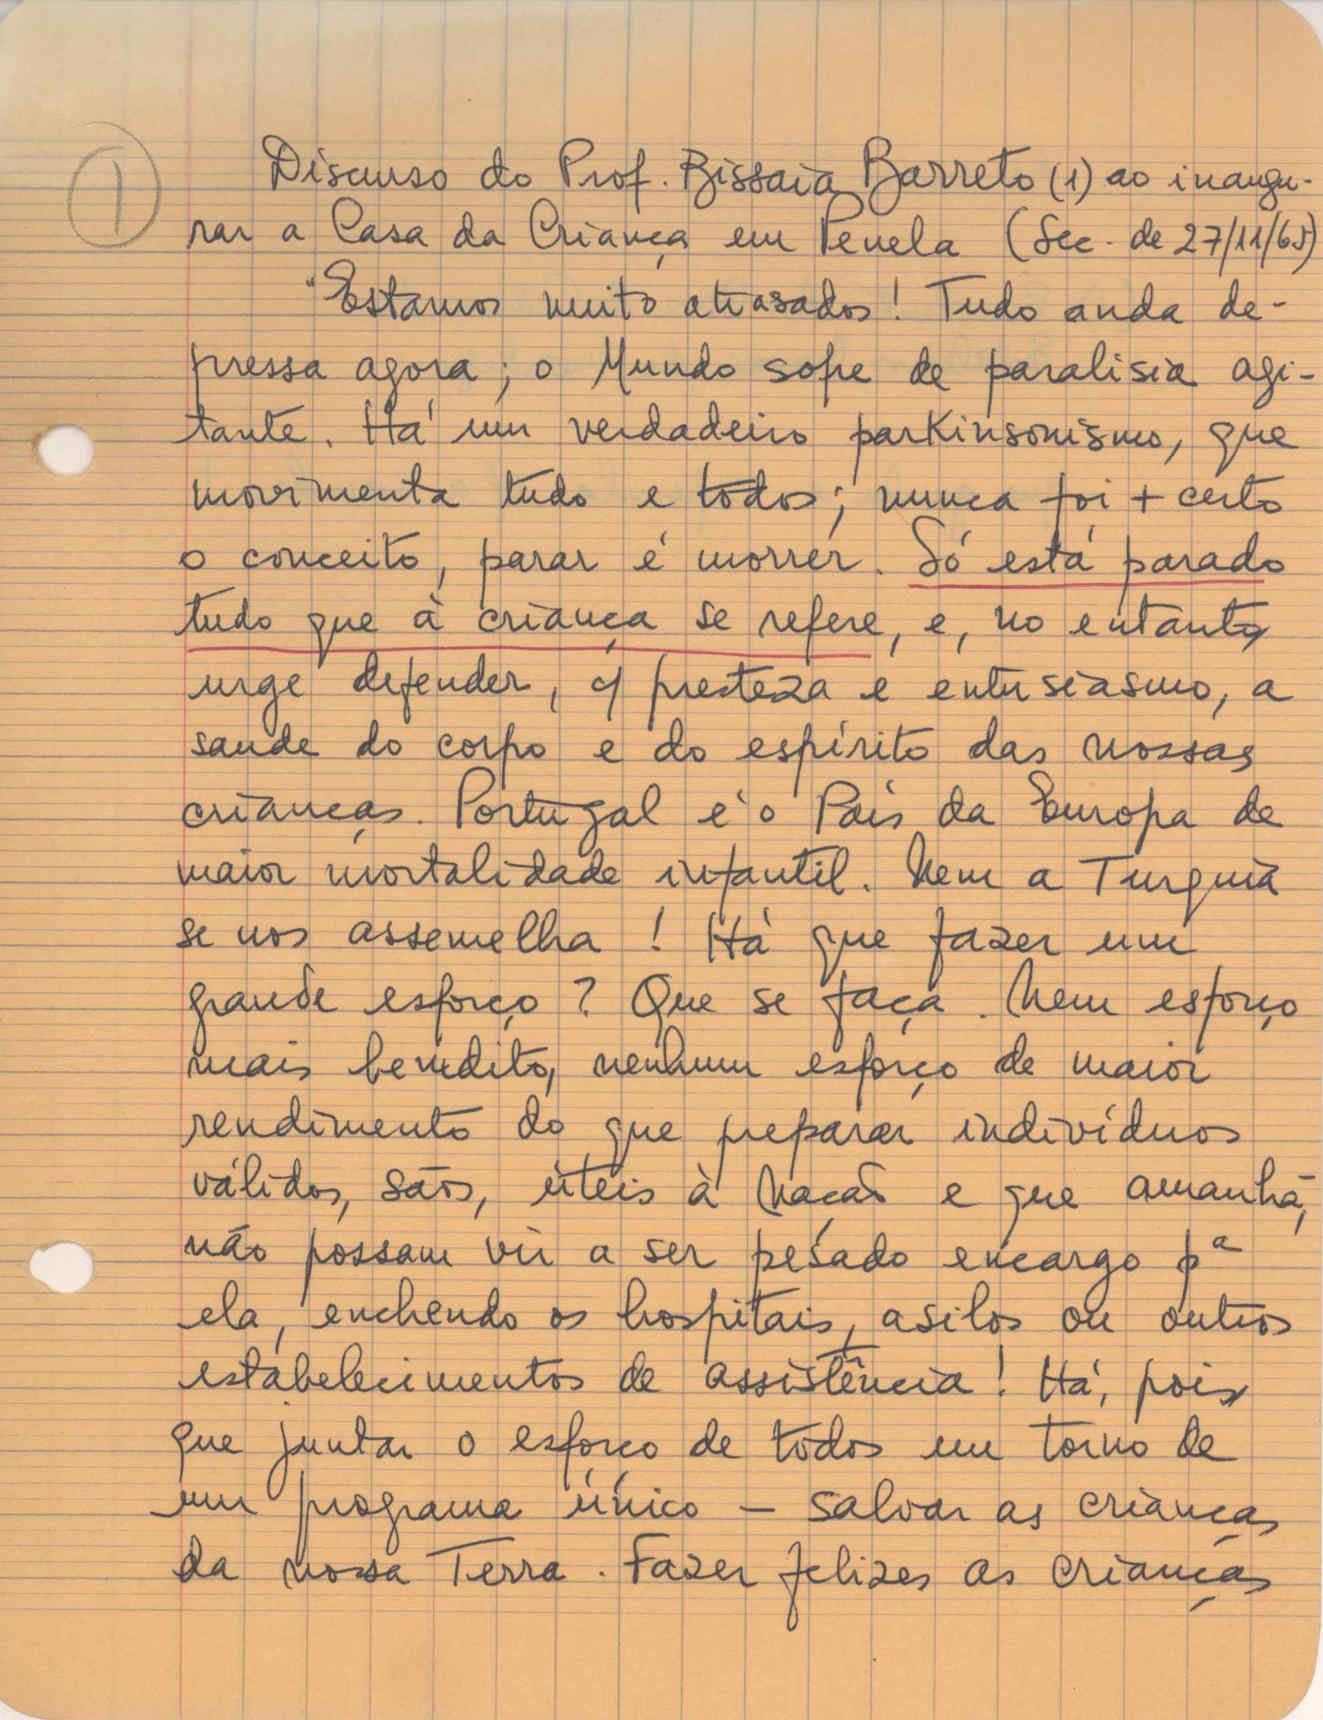 1
Discurso do Prof. Bissaia Barreto (1) ao inaugu-
rar a Casa da Criança em Penela (Sec. de 27/11/65)
"Estamos muito atrasados! Tudo anda de-
pressa agora; o Mundo sofre de paralisia agi-
tante. Há um verdadeiro parkinsonismo, que
movimenta tudo e todos; nunca foi + certo
o conceito, parar é morrer. Só está parado
tudo que à criança se refere, e, no entanto,
urge defender, c/ presteza e entusiasmo, a
saude do corpo e do espírito das nossas
crianças. Portugal é o País da Europa de
maior mortalidade infantil. Nem a Turquia
se nos assemelha! Há que fazer um
grande esforço? Que se faça. Nem esforço
mais bendito, nenhum esforço de maior
rendimento do que preparar indivíduos
válidos, sãos, úteis à Nação e que amanhã,
não possam vir a ser pesado encargo pª
ela, enchendo os hospitais, asilos ou outros
estabelecimentos de assistência! Há, pois,
que juntar o esforço de todos em torno de
um programa único — salvar as crianças
da nossa Terra. Fazer felizes as crianças